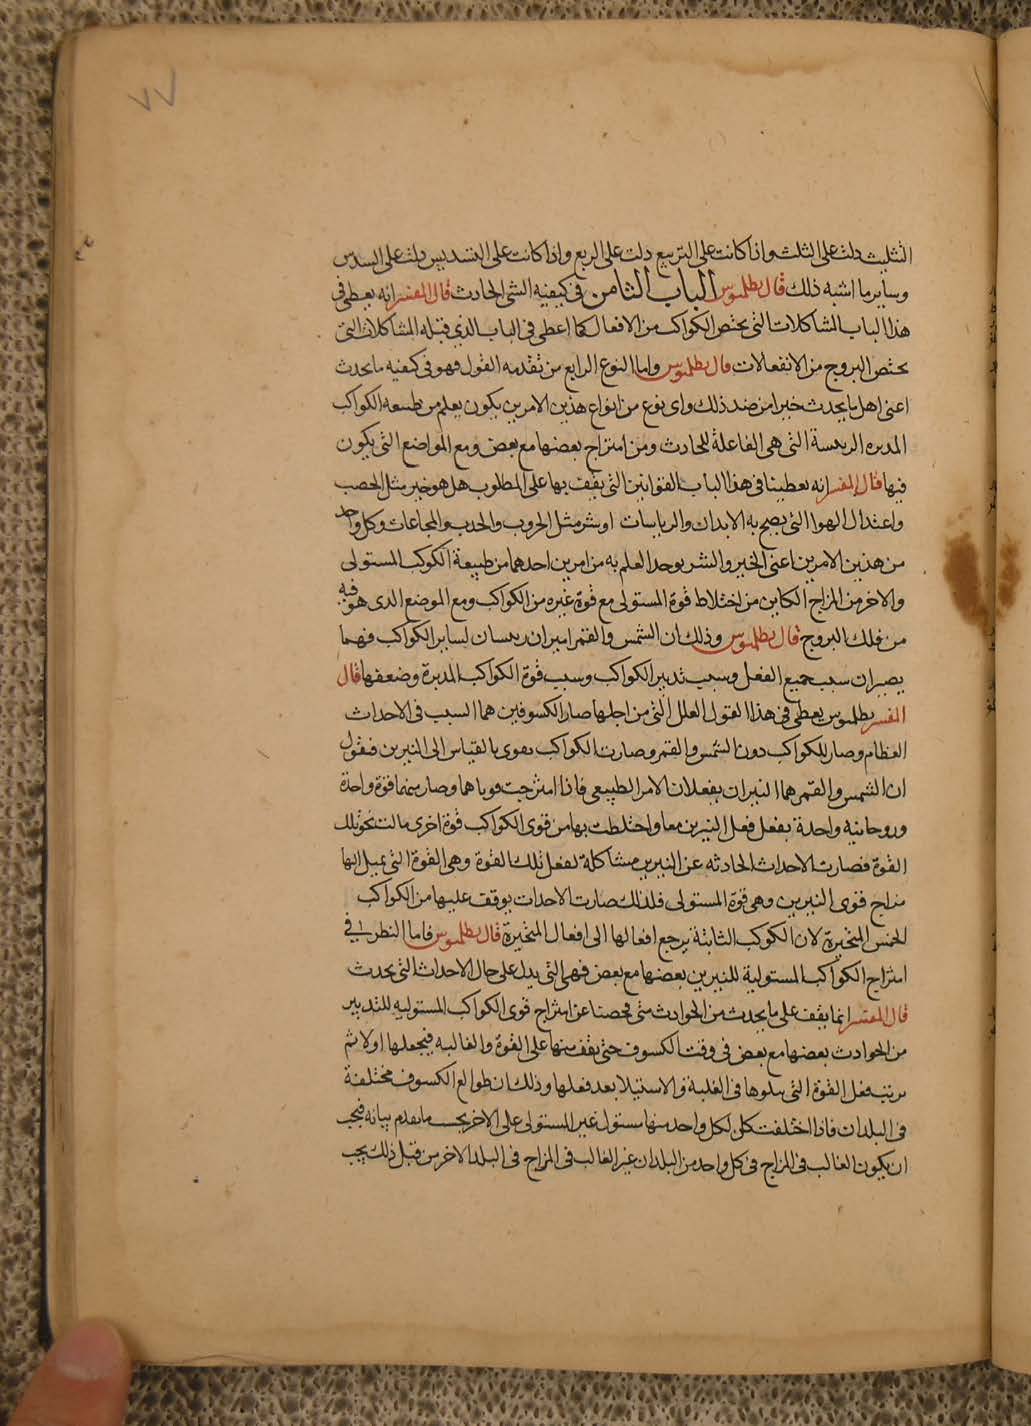 ٧٧
التثليث دلت على الثلث واذا كانت على التربيع دلت على الربع واذا كانت على التسديس دلت على السدس
وساير ما اشبه ذلك قال بطلميوس الباب الثامن في كيفية الشي الحادث قال المفسر انه يعطي في
هذا الباب المشاكلات التي تخص الكواكب من الافعال كما اعطى في الباب الذي قبله المشاكلات التي
تختص البروج من الانفعالات قال بطلميوس واما النوع الرابع من تقدمه القول فهو في كيفيه ما يحدث
اعني اهل ما يحدث خيرا من ضد ذلك واي نوع من انواع هذين الامرين يكون يعلم من طبيعه الكواكب
المدبره الرييسة التي هي الفاعلة للحادث ومن امتزاج بعضها مع بعض ومع المواضع التي يكون
فيها قال المفسر انه يعطينا في هذا الباب القوانين التي يقف بها على المطلوب هل هو خير مثل الخصب
واعتدال الهوا التي يصح به الابدان والرياسات او شر مثل الحروب والجدب والمجاعات وكل واحد
من هذين الامرين اعني الخير والشر يوخذ العلم به من امرين احدهما من طبيعة الكوكب المستولى
والاخر من المزاج الكاين من اختلاط قوة المستولى مع قوة غيره من الكواكب ومع الموضع الذى هو فيه
من فلك البروج قال بطلميوس وذلك ان الشمس والقمر اميران رييسان لساير الكواكب فهما
يصيران سبب جميع الفعل وسبب تدبير الكواكب وسبب قوة الكواكب المدبرة وضعفها قال
المفسر بطلميوس يعطي في هذا القول العلل التي من اجلها صار الكسوفين هما السبب في الاحداث
العظام وصار للكواكب دون الشمس والقمر وصارت الكواكب تقوى بالقياس الى النيرين فنقول
ان الشمس والقمر هما النيران يفعلان الامر الطبيعي فاذا امتزجت قوباهما وصار منهما قوة واحدة
وروحانيه واحدة يفعل فعل النيرين معا واختلطت بها من قوى الكواكب قوة اخرى مالت نحو تلك
القوة فصارت الاحداث الحادثه عن النيرين مشاكلة لفعل تلك القوة وهي القوة التي يميل اليها
مزاج قوى النيرين وهي قوة المستولى فلذلك صارت الاحداث يوقف عليها من الكواكب
الخمس المتحيرة لان الكواكب الثابتة يرجع افعالها الى افعال المتحيرة قال بطلميوس فاما النظر في
امتزاج الكواكب المستولية للنيرين بعضها مع بعض فهي التي يدل على حال الاحداث التي يحدث
قال المفسر انما يقف على ما يحدث من الحوادث متى فحصنا عن امتزاج قوى الكواكب المستوليه للتدبير
من الحوادث بعضها مع بعض في وقت الكسوف حتى نقف منها على القوة والغالبه فيجعلها اولا ثم
نرتب فعل القوة التي يتلوها في الغلبة والاستيلا بعد فعلها وذلك ان طوالع الكسوف مختلفة
في البلدان فاذا اختلفت كان لكل واحد منها مستول غير المستولى على الاخر بحسب ما تقدم بيانه فيجب
ان يكون الغالب في المزاج في كل واحد من البلدان غير الغالب في المزاج في البلد الاخر من قبل ذلك يجب